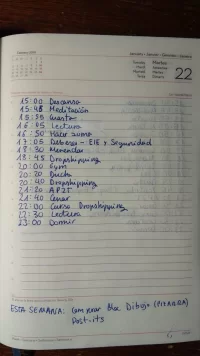 22
15:00 Descanso
15:45 Meditación
15:55 Cuarto
16:05 Lectura
16:50 Hacer sumo
17:05 Deberes - EIE y Seguridad
18:30 Merendar
18:45 Dropshipping
20:00 Gym
20:20 Ducha
20:40 Dropshipping
21:20 AP2T
21:40 Cenar
22:00 Curso Dropshipping
22:30 Lectura
23:00 Dormir
ESTA SEMANA: Comprar Bloc Dibujo (PIZARRA)
Post-its